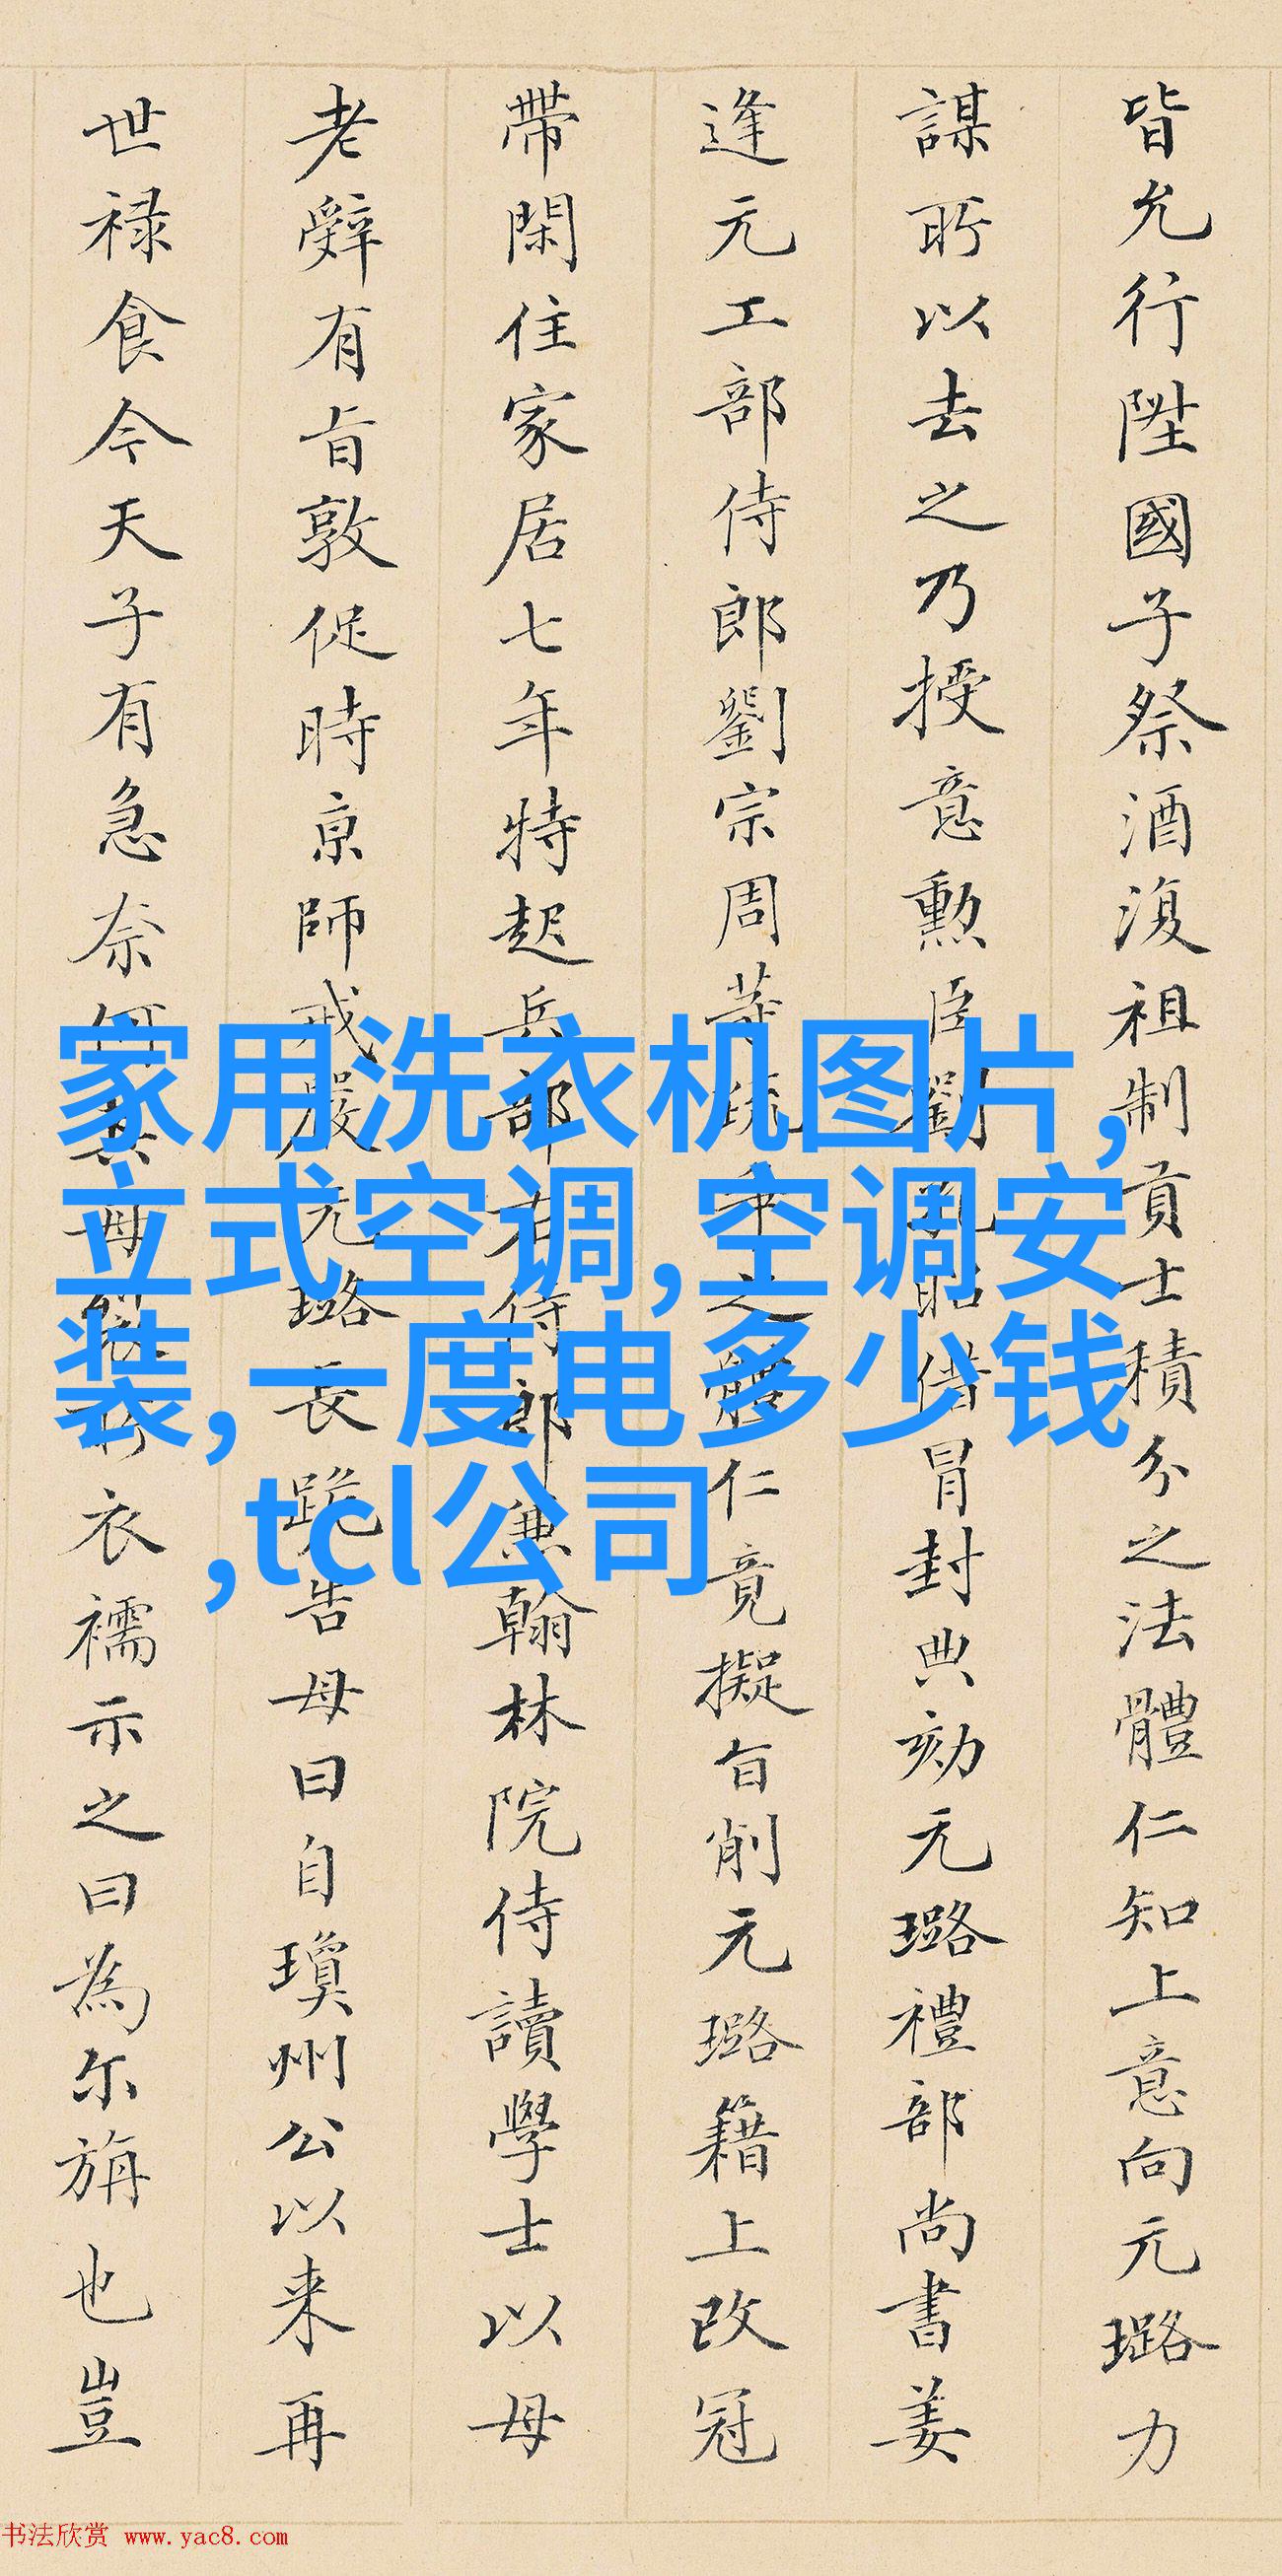 皆允行陞國子祭酒復祖制貢士積分之法體仁知上意向元璐力
謀所以去之乃授意勲臣劉孔昭借冒封典劾元璐禮部尚書姜
逢元工部侍郎劉宗周等疏𠦑之體仁竟擬旨削元璐籍上改冠
帶閑住家居七年特起兵部右侍郎兼翰林院侍讀學士以母
老辭有旨敦促時京師戒嚴元璐長跪告母曰自瓊州公以来再
世禄食今天子有急奈何其母衣襦示之曰為尔旃也豈
家用洗衣机图片,
立式空调,空调安
装,一度电多少钱
,tcl公司
书法欣赏 www.yac8.com